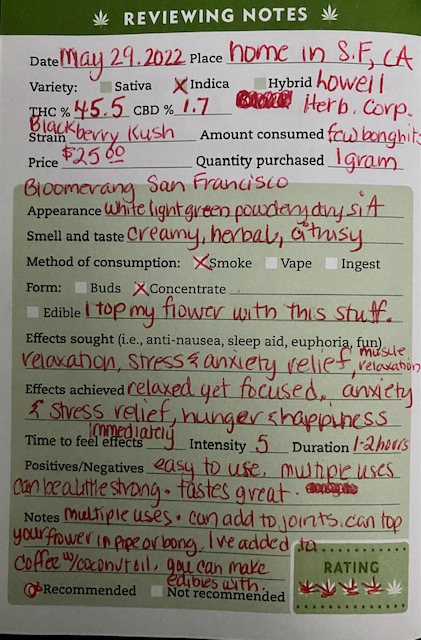 REVIEWING NOTES
Date May 29.2022 Place home in S.F, CA
Variety: Sativa Indica Hybrid Lowell
THC % 45.5 CBD % 1.7 Herb. Corp.
Strain Blackberry Kush Amount consumed few bong hits
Price $25.00 Quantity purchased 1 gram
Bloomerang San Francisco
Appearance white light green powdery dry sift
Smell and taste creamy, herbal, citrusy
Method of consumption: Smoke Vape Ingest
Form: Buds Concentrate
Edible I top my flower with this stuff.
Effects sought (i.e., anti-nausea, sleep aid, euphoria, fun)
relaxation, stress & anxiety relief, muscle relaxation
Effects achieved relaxed yet focused, anxiety
& stress relief, hunger & happiness
Time to feel effects immediately Intensity 5 Duration 1-2 hours
Positives/Negatives easy to use, multiple uses
can be a little strong. tastes great.
Notes multiple uses. can add to joints. can top
your flower in pipe or bong. I've added to
coffee w/coconut oil. you can make
edibles with.
Recommended Not recommended
RATING